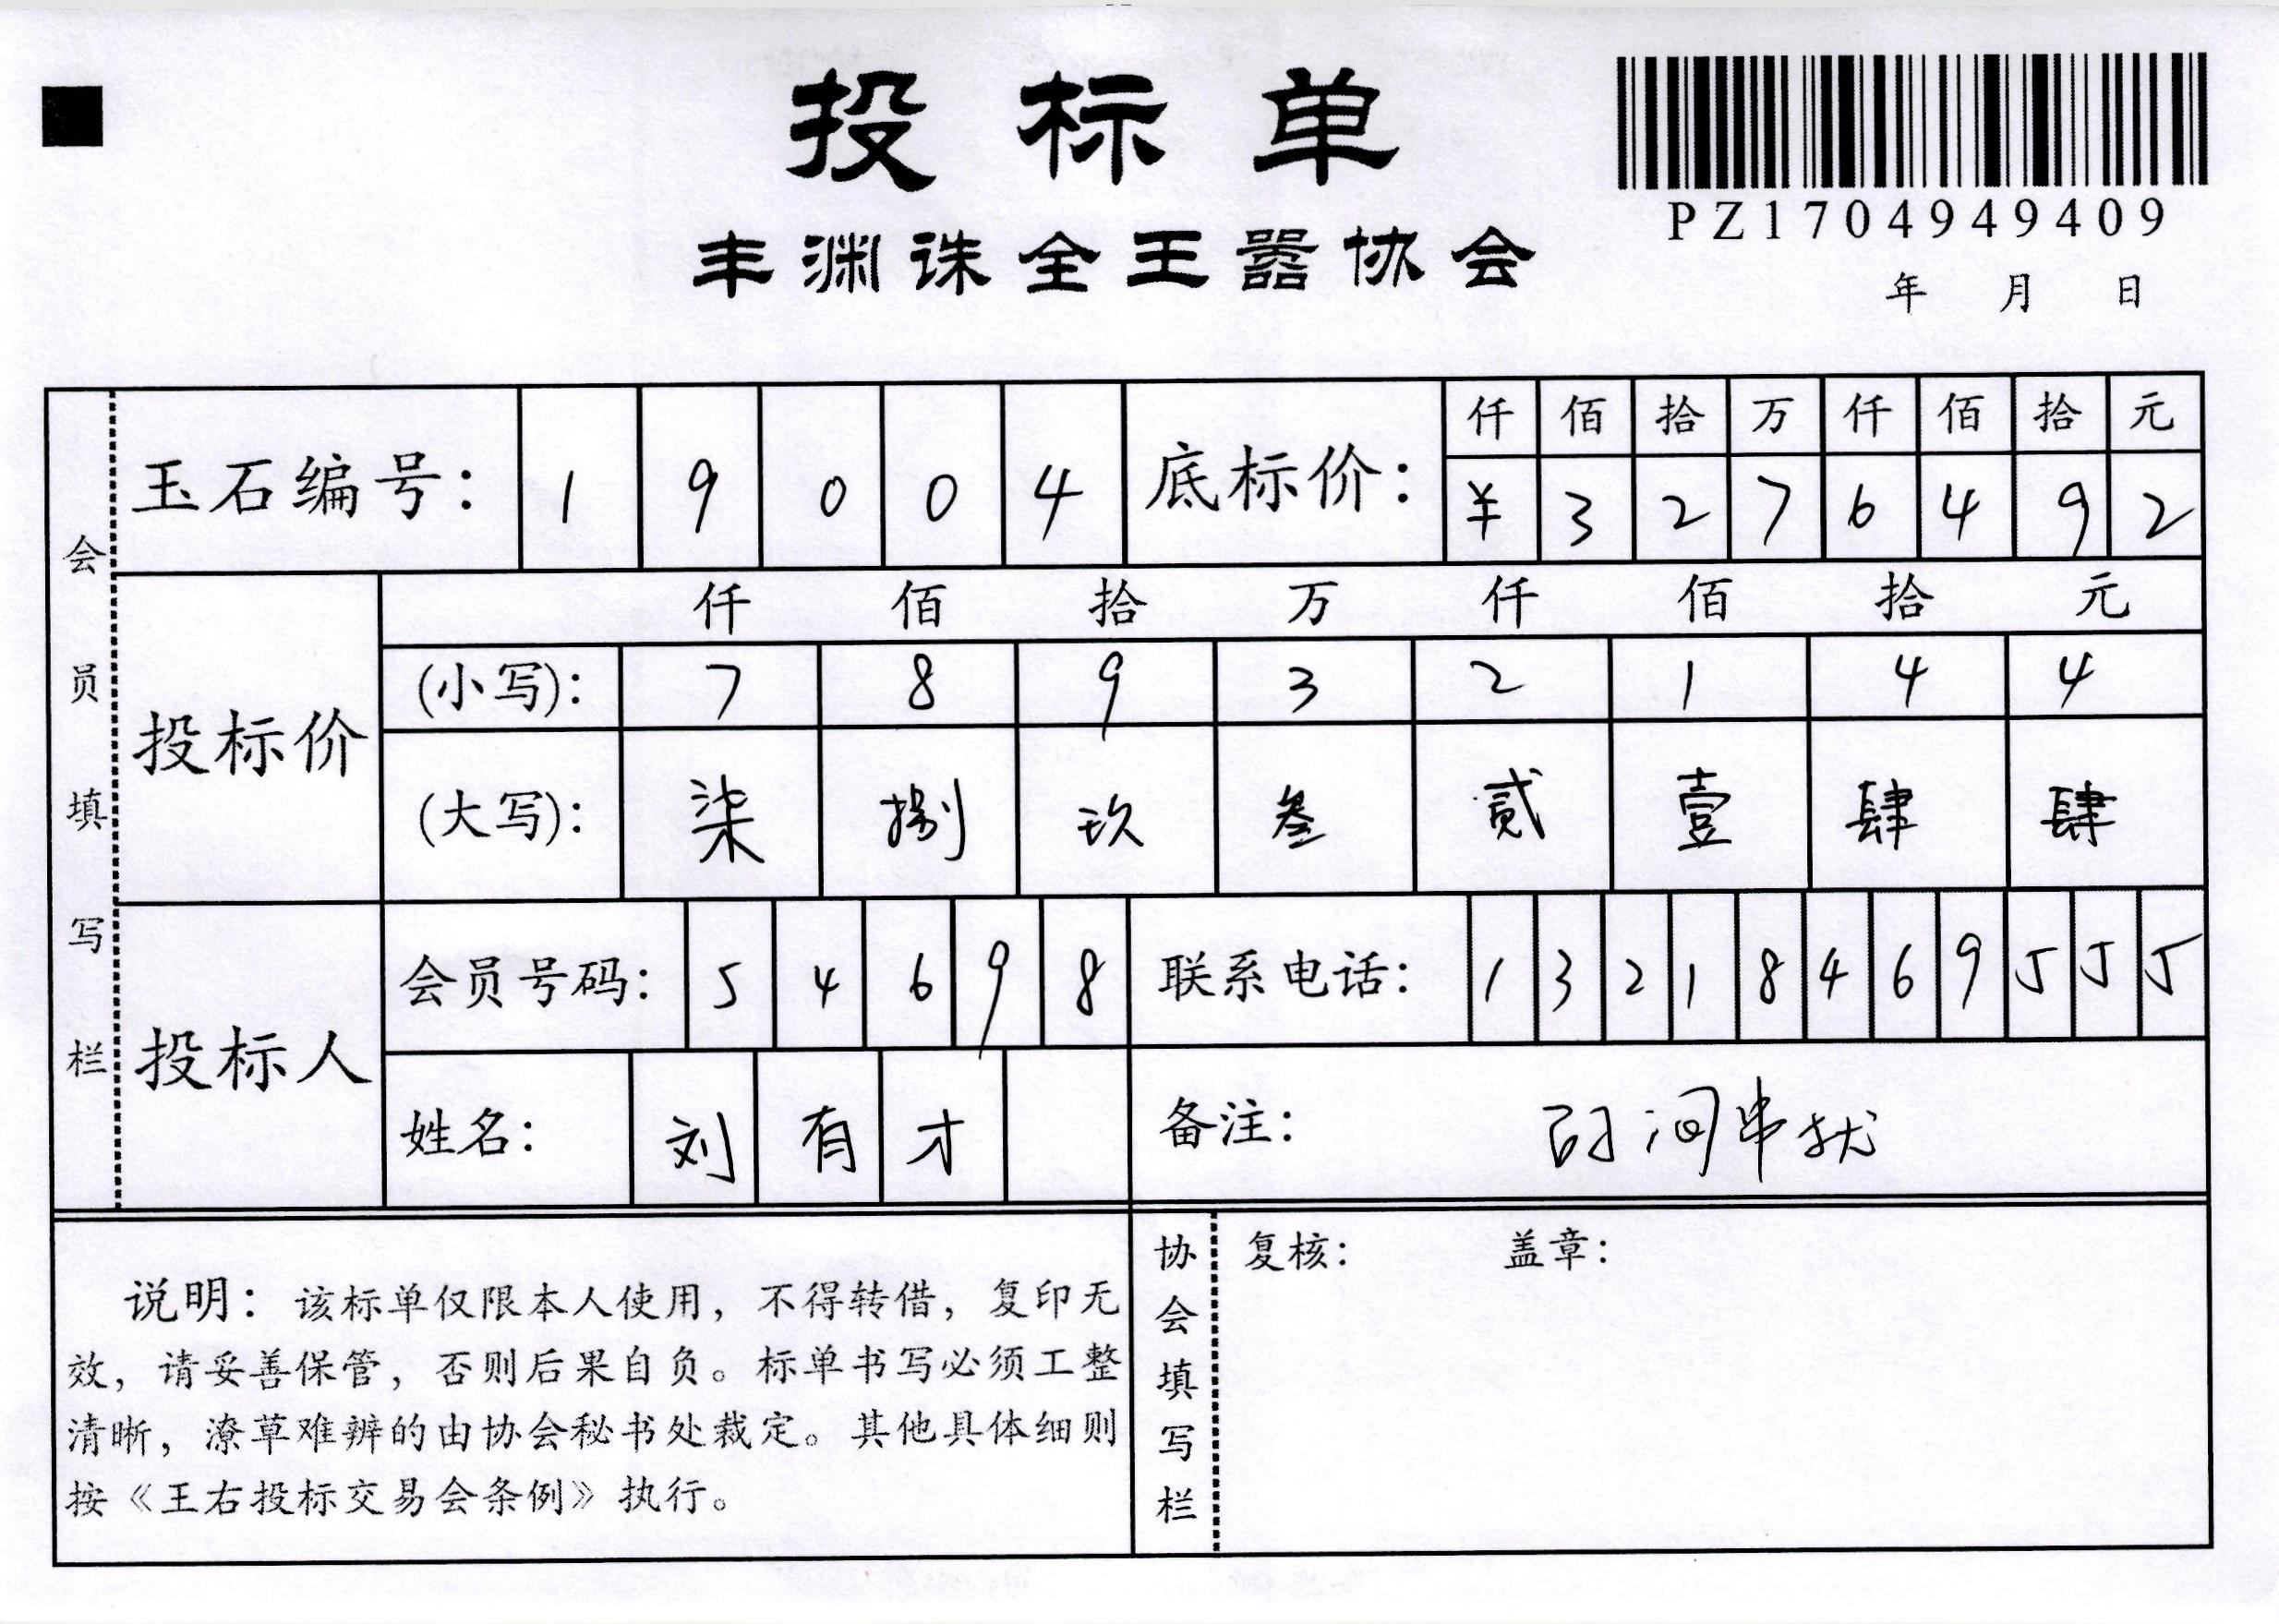 投标单
PZ1704949409
丰渊诛全王嚣协会
年 月 日
会员填写栏
玉石编号: 1 9 0 0 4
底标价: 仟 佰 拾 万 仟 佰 拾 元
¥ 3 2 7 6 4 9 2
投标价
仟 佰 拾 万 仟 佰 拾 元
(小写): 7 8 9 3 2 1 4 4
(大写): 柒 捌 玖 叁 贰 壹 肆 肆
投标人
会员号码: 5 4 6 9 8
联系电话: 1 3 2 1 8 4 6 9 5 5 5
姓名: 刘 有 才
备注:
说明: 该标单仅限本人使用, 不得转借, 复印无
效, 请妥善保管, 否则后果自负。标单书写必须工整
清晰, 潦草难辨的由协会秘书处裁定。其他具体细则
按《王右投标交易会条例》执行。
协会填写栏
复核: 盖章: